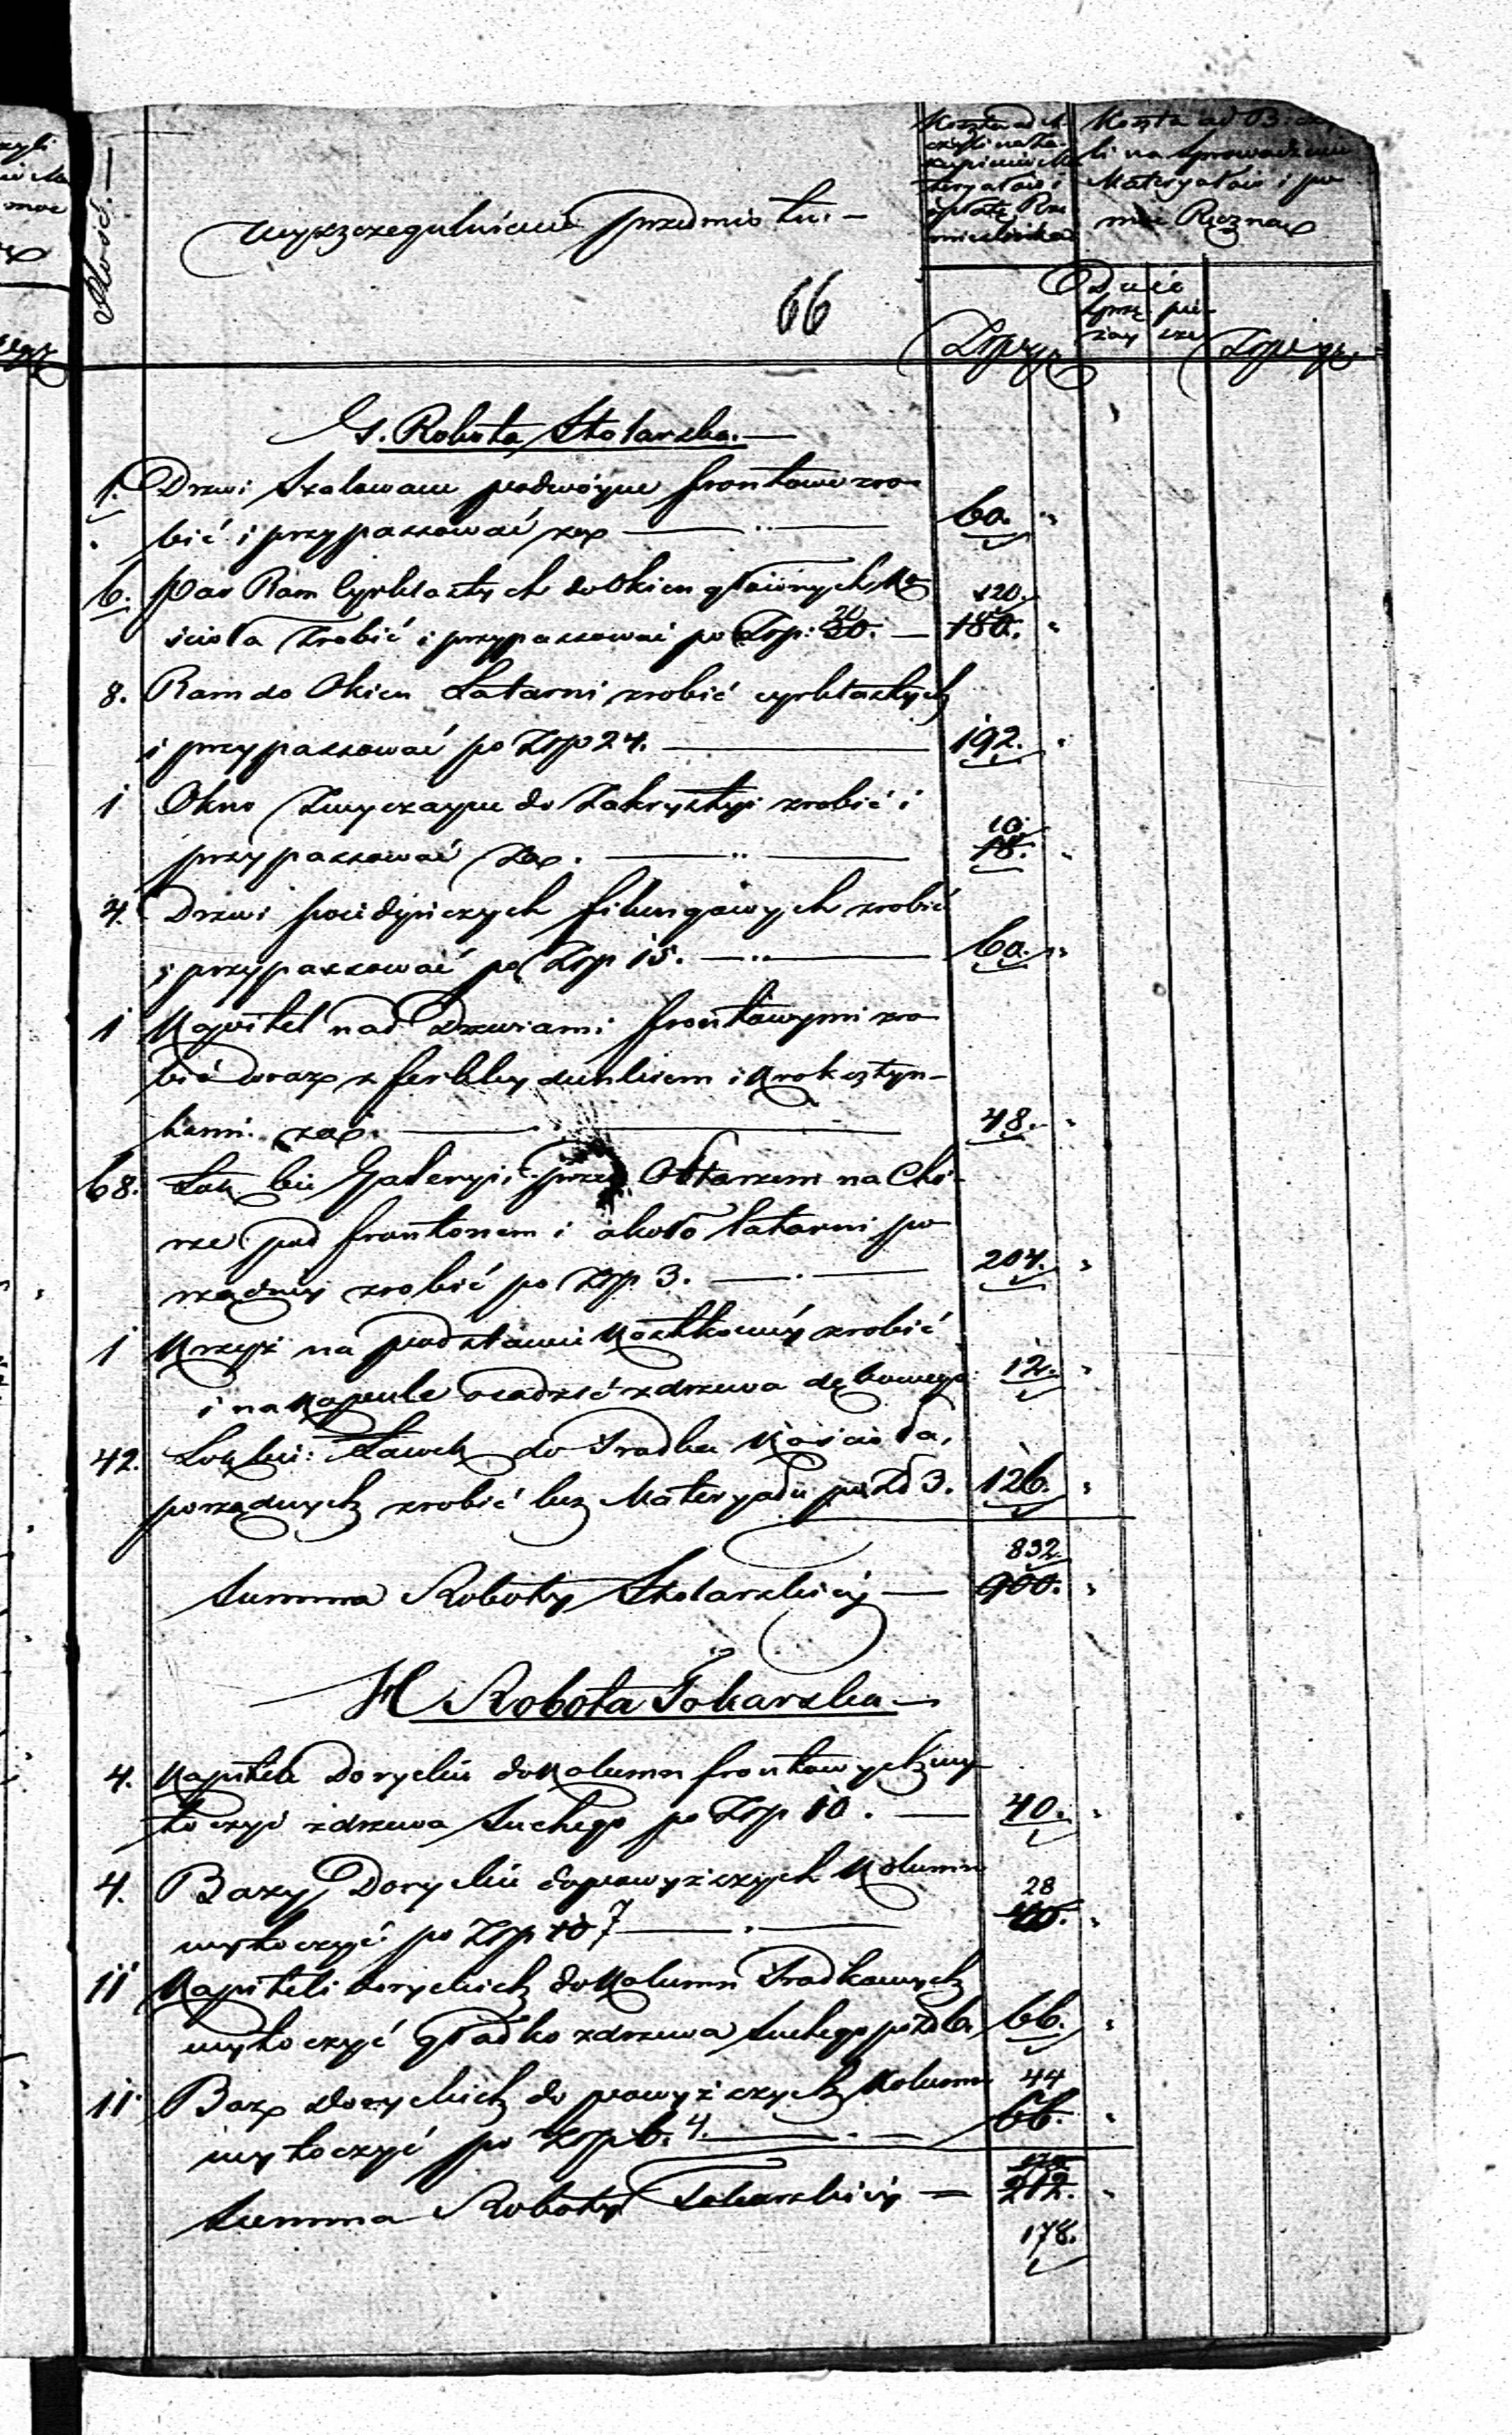 Ilość.
Wyszczegulnienie przedmiotu.
Koszta ad A
czyli na Za-
kupienie Ma
teryałów i
opłatę Rze
mieślnika
Koszta ad B. czy
li na sprowadzenie
Materyałów i po
moc Ręczną
66
Złp gr
Dnie
sprzę pie-
żay sze
Złp gr
G. Robota Stolarska.
1. Drzwi Szalowane podwóyne frontowe zro
bić i przypassować
60.
6. par Ram cyrklastych do okien głównych Ko
120.
ścioła zrobić i przypassować po Złp: 30. 20
180.
8. Ram do Okien Latarni zrobić cyrklastych
i przypassować po Złp 24.
192.
1 Okno Zwyczayne do Zakrystyi zrobić i
10.
przypassować
18.
4. Drzwi poiedyńczych filungowych zrobić
i przypassować po Złp 15.
60.
1 Kapitel nad Drzwiami frontowymi zro
bić wraz z i Kroksztyn-
kami
48.
68. Łok bie Galeryi przed Ołtarzem na Chó-
rze pod frontonem i około latarni po
rządnie zrobić po Złp 3.
204.
1 Krzyż na podstawie zrobić
i na Kopule osadzić z drzewa dębowego
12.
42. Łok bie: Ławek do Srodka Kościoła,
porządnych zrobić bez Materyału po Zł 3.
126.
832.
Summa Roboty Stolarskiéy
900.
H Robota Tokarska
4. Kapitele Doryckie do Kolumn frontowych wy
toczyć z drzewa suchego po Złp 10.
40.
4. Bazy Doryckie do powyższych Kolumn
28
wytoczyć po Złp 10 7
40.
11 Kapiteli doryckich do Kolumn Srodkowych
wytoczyć gładko z drzewa suchego po Zł 6.
66.
11. Baz doryckich do powyższych Kolumn
44
wytoczyć po Złp 6. 4.
66.
Summa Roboty Tokarskiéy
212.
178.